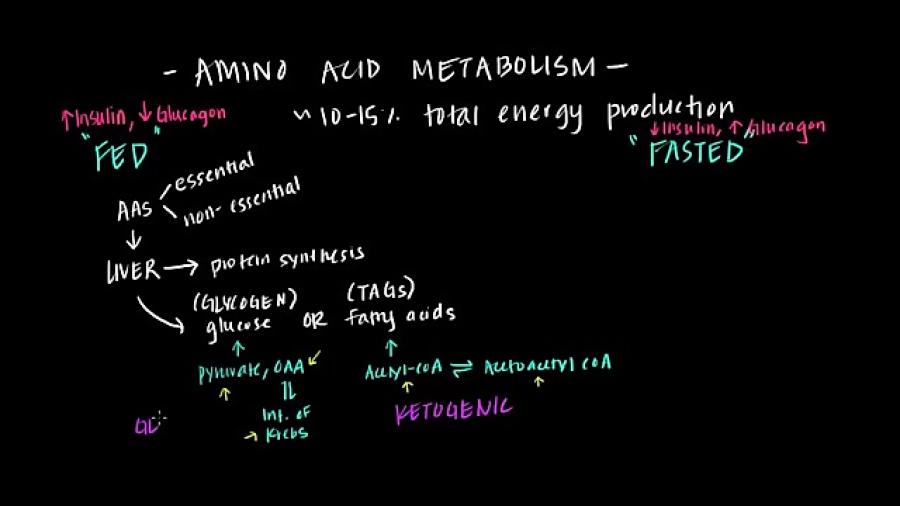 - AMINO ACID METABOLISM -
~ 10-15% total energy production
↑Insulin, ↓Glucagon
"FED"
↓Insulin, ↑Glucagon
"FASTED"
AAs
essential
non-essential
↓
LIVER → protein synthesis
(GLYCOGEN) (TAGs)
glucose OR fatty acids
↑ ↑
Pyruvate, OAA Acetyl-CoA ⇌ Acetoacetyl CoA
Int. of
→ Krebs
KETOGENIC
GL